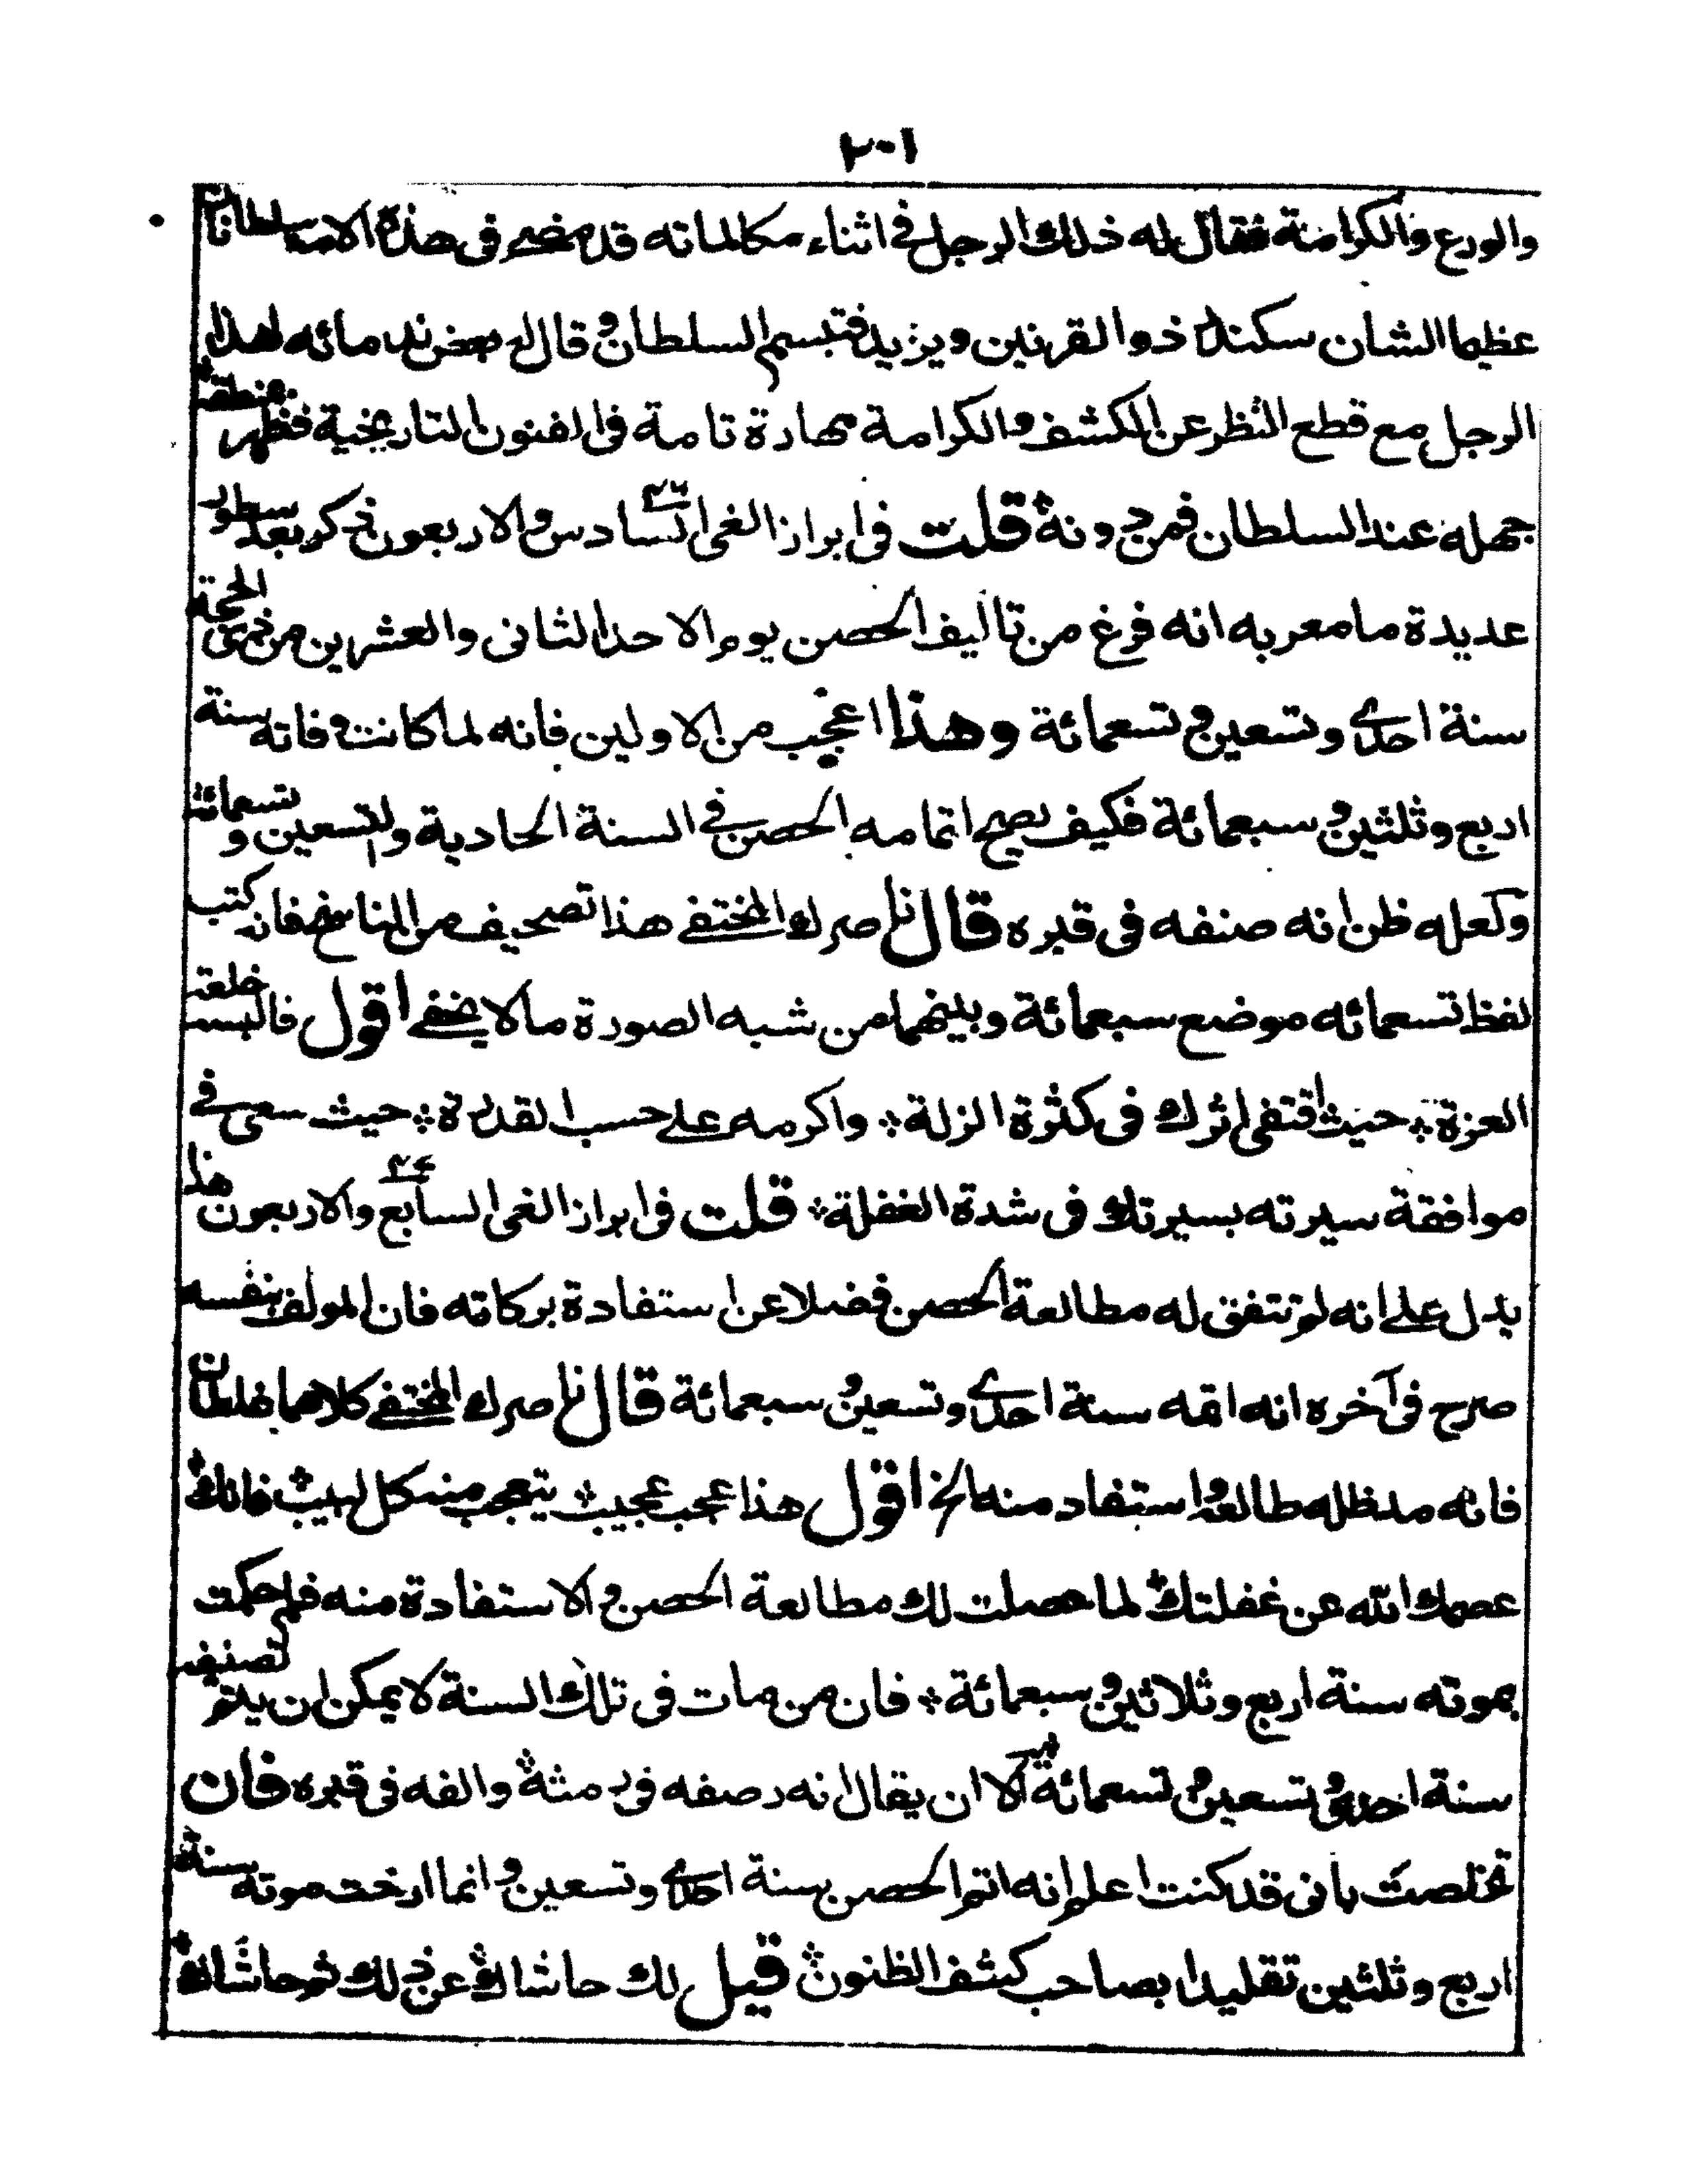 ٢٠١
والورع والكرامة فقال له ذلك الرجل في اثناء مكالماته قد مضى فى هذه الامة سلطانان
عظيما الشان سكندر ذو القرنين ويزيد فتبسم السلطان وقال له ندمائه لهذا
الرجل مع قطع النظر عن الكشف والكرامة مهارة تامة فى الفنون التاريخية فظهر منطقه
جهله عند السلطان فمن دونه قلت فى ابراز الغى السادس والاربعون ذكر بعد سطور
عديدة ما معربه انه فرغ من تاليف الحصن يوم الاحد الثانى والعشرين من ذى الحجة
سنة احدى وتسعين وتسعمائة وهذا اعجب من الاولين فانه لما كانت وفاته سنة
اربع وثلثين وسبعمائة فكيف يصح اتمامه الحصن فى السنة الحادية والتسعين وتسعمائة
ولعله ظن انه صنفه فى قبره قال ناصرك المختفى هذا تصحيف من الناسخ فانه كتب
لفظ تسعمائه موضع سبعمائة وبينهما من شبه الصورة ما لا يخفى اقول فالبسه خلعة
العزة حيث اقتفى اثرك فى كثرة الزلة واكرمه على حسب القدرة حيث سعى فى
موافقة سيرته بسيرتك فى شدة الغفلة قلت فى ابراز الغى السابع والاربعون هذا
يدل على انه لم تتفق له مطالعة الحصن فضلا عن استفادة بركاته فان المولف بنفسه
صرح فى آخره انه اتمه سنة احدى وتسعين وسبعمائة قال ناصرك المختفى كلاهما غلطان
فانه مد ظله طالعه واستفاد منه الخ اقول هذا عجب عجيب يتعجب منه كل لبيب فانك
عصمك الله عن غفلتك لما حصلت لك مطالعة الحصن والاستفادة منه فلم حكمت
بموته سنة اربع وثلاثين وسبعمائة فان من مات فى تلك السنة لا يمكن ان يتم تصنيفه
سنة احدى وتسعين وتسعمائة الا ان يقال انه رصفه فى رمثه والفه فى قبره فان
تخلصت بانى قد كنت اعلم انه اتم الحصن سنة احدى وتسعين وانما ارخت موته سنة
اربع وثلثين تقليدا بصاحب كشف الظنون قيل لك حاشاك عن ذلك ثم حاشاك